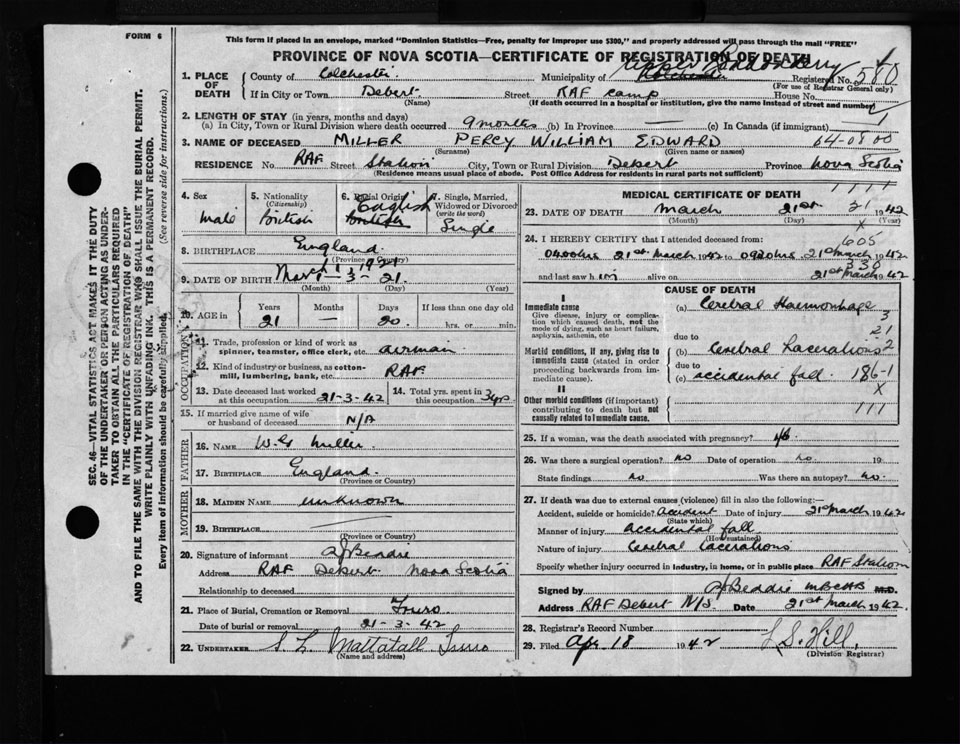 FORM 6
This form if placed in an envelope, marked "Dominion Statistics—Free, penalty for improper use $300," and properly addressed will pass through the mail "FREE"
PROVINCE OF NOVA SCOTIA—CERTIFICATE OF REGISTRATION OF DEATH
1. PLACE OF DEATH County of Colchester Municipality of Colchester Upper Londonderry Registered No. 580
(For use of Registrar General only)
If in City or Town Debert Street RAF Camp House No.
(Name) (If death occurred in a hospital or institution, give the name instead of street and number)
2. LENGTH OF STAY (in years, months and days)
(a) In City, Town or Rural Division where death occurred 9 months (b) In Province — (c) In Canada (if immigrant) —
3. NAME OF DECEASED MILLER PERCY WILLIAM EDWARD 04-0800
(Surname) (Given name or names)
RESIDENCE No. RAF Street Station City, Town or Rural Division Debert Province Nova Scotia
(Residence means usual place of abode. Post Office Address for residents in rural parts not sufficient)
4. Sex 5. Nationality (Citizenship) 6. Racial Origin 7. Single, Married, Widowed or Divorced (write the word)
Male British British English Single
8. BIRTHPLACE England
(Province or Country)
9. DATE OF BIRTH March 1, 1921 1-3-21
(Month) (Day) (Year)
10. AGE in Years Months Days If less than one day old
21 — 20 hrs. or min.
OCCUPATION
11. Trade, profession or kind of work as spinner, teamster, office clerk, etc. airman
12. Kind of industry or business, as cotton-mill, lumbering, bank, etc. RAF
13. Date deceased last worked at this occupation 21-3-42 14. Total yrs. spent in this occupation 3 yrs
15. If married give name of wife or husband of deceased N/A
FATHER
16. NAME Miller
17. BIRTHPLACE England
(Province or Country)
MOTHER
18. MAIDEN NAME unknown
19. BIRTHPLACE —
(Province or Country)
20. Signature of informant Beddie
Address RAF Debert Nova Scotia
Relationship to deceased
21. Place of Burial, Cremation or Removal Truro
Date of burial or removal 21-3-42
22. UNDERTAKER S. L. Mattatall Truro
(Name and address)
MEDICAL CERTIFICATE OF DEATH
1111
23. DATE OF DEATH March 21st 21 1942
(Month) (Day)
X
24. I HEREBY CERTIFY that I attended deceased from: 605
0400hrs 21st March 1942 to 0920hrs 21st March 1942
330
and last saw him alive on 21st March 1942
CAUSE OF DEATH
I
Immediate cause
Give disease, injury or complication which caused death, not the mode of dying, such as heart failure, asphyxia, asthenia, etc
(a) Cerebral Haemorrhage 3
21
due to
Morbid conditions, if any, giving rise to immediate cause (stated in order proceeding backwards from immediate cause).
(b) Cerebral Lacerations 2
due to
(c) accidental fall. 186-1
X
II
Other morbid conditions (if important) contributing to death but not causally related to immediate cause.
111
25. If a woman, was the death associated with pregnancy?
26. Was there a surgical operation? no Date of operation no. 19
State findings no Was there an autopsy? no.
27. If death was due to external causes (violence) fill in also the following:—
Accident, suicide or homicide? Accident Date of injury 21st March 1942
(State which)
Manner of injury accidental fall
(How sustained)
Nature of injury Cerebral lacerations
Specify whether injury occurred in industry, in home, or in public place RAF Station
Signed by Beddie MBCHB M.D.
Address RAF Debert N/S Date 21st March 1942.
28. Registrar's Record Number
29. Filed Apr 18 1942 L S. Hill,
(Division Registrar)
SEC. 46—VITAL STATISTICS ACT MAKES IT THE DUTY
OF THE UNDERTAKER OR PERSON ACTING AS UNDER-
TAKER TO OBTAIN ALL THE PARTICULARS REQUIRED
IN THE "CERTIFICATE OF REGISTRATION OF DEATH"
AND TO FILE THE SAME WITH THE DIVISION REGISTRAR WHO SHALL ISSUE THE BURIAL PERMIT.
WRITE PLAINLY WITH UNFADING INK. THIS IS A PERMANENT RECORD.
Every item of information should be carefully supplied. (See reverse side for instructions.)